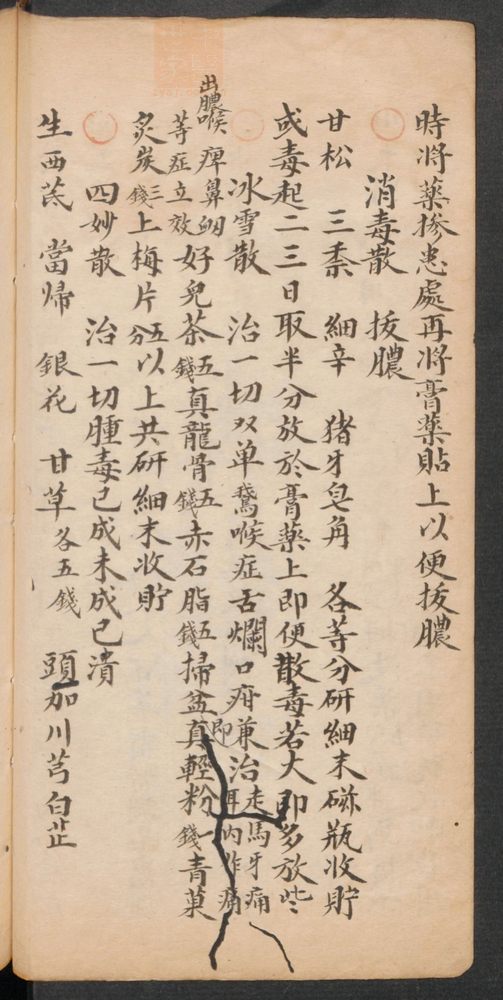 時將藥摻患處再將膏藥貼上以便拔膿
消毒散 拔膿
甘松 三柰 細辛 猪牙皂角 各等分研細末磁瓶收貯
或毒起二三日取半分放於膏藥上即便散毒若大即多放些
冰雪散 治一切双单鵞喉症舌爛口疳兼治走馬牙痛耳內作痛
出膿喉痺鼻衂等症立效好兒茶五錢真龍骨五錢赤石脂五錢掃盆即真輕粉一錢青菓
炙炭三錢上梅片五分以上共研細末收貯
四妙散 治一切腫毒已成未成已潰
生西芪 當歸 銀花 甘草各五錢 頭加川芎白芷